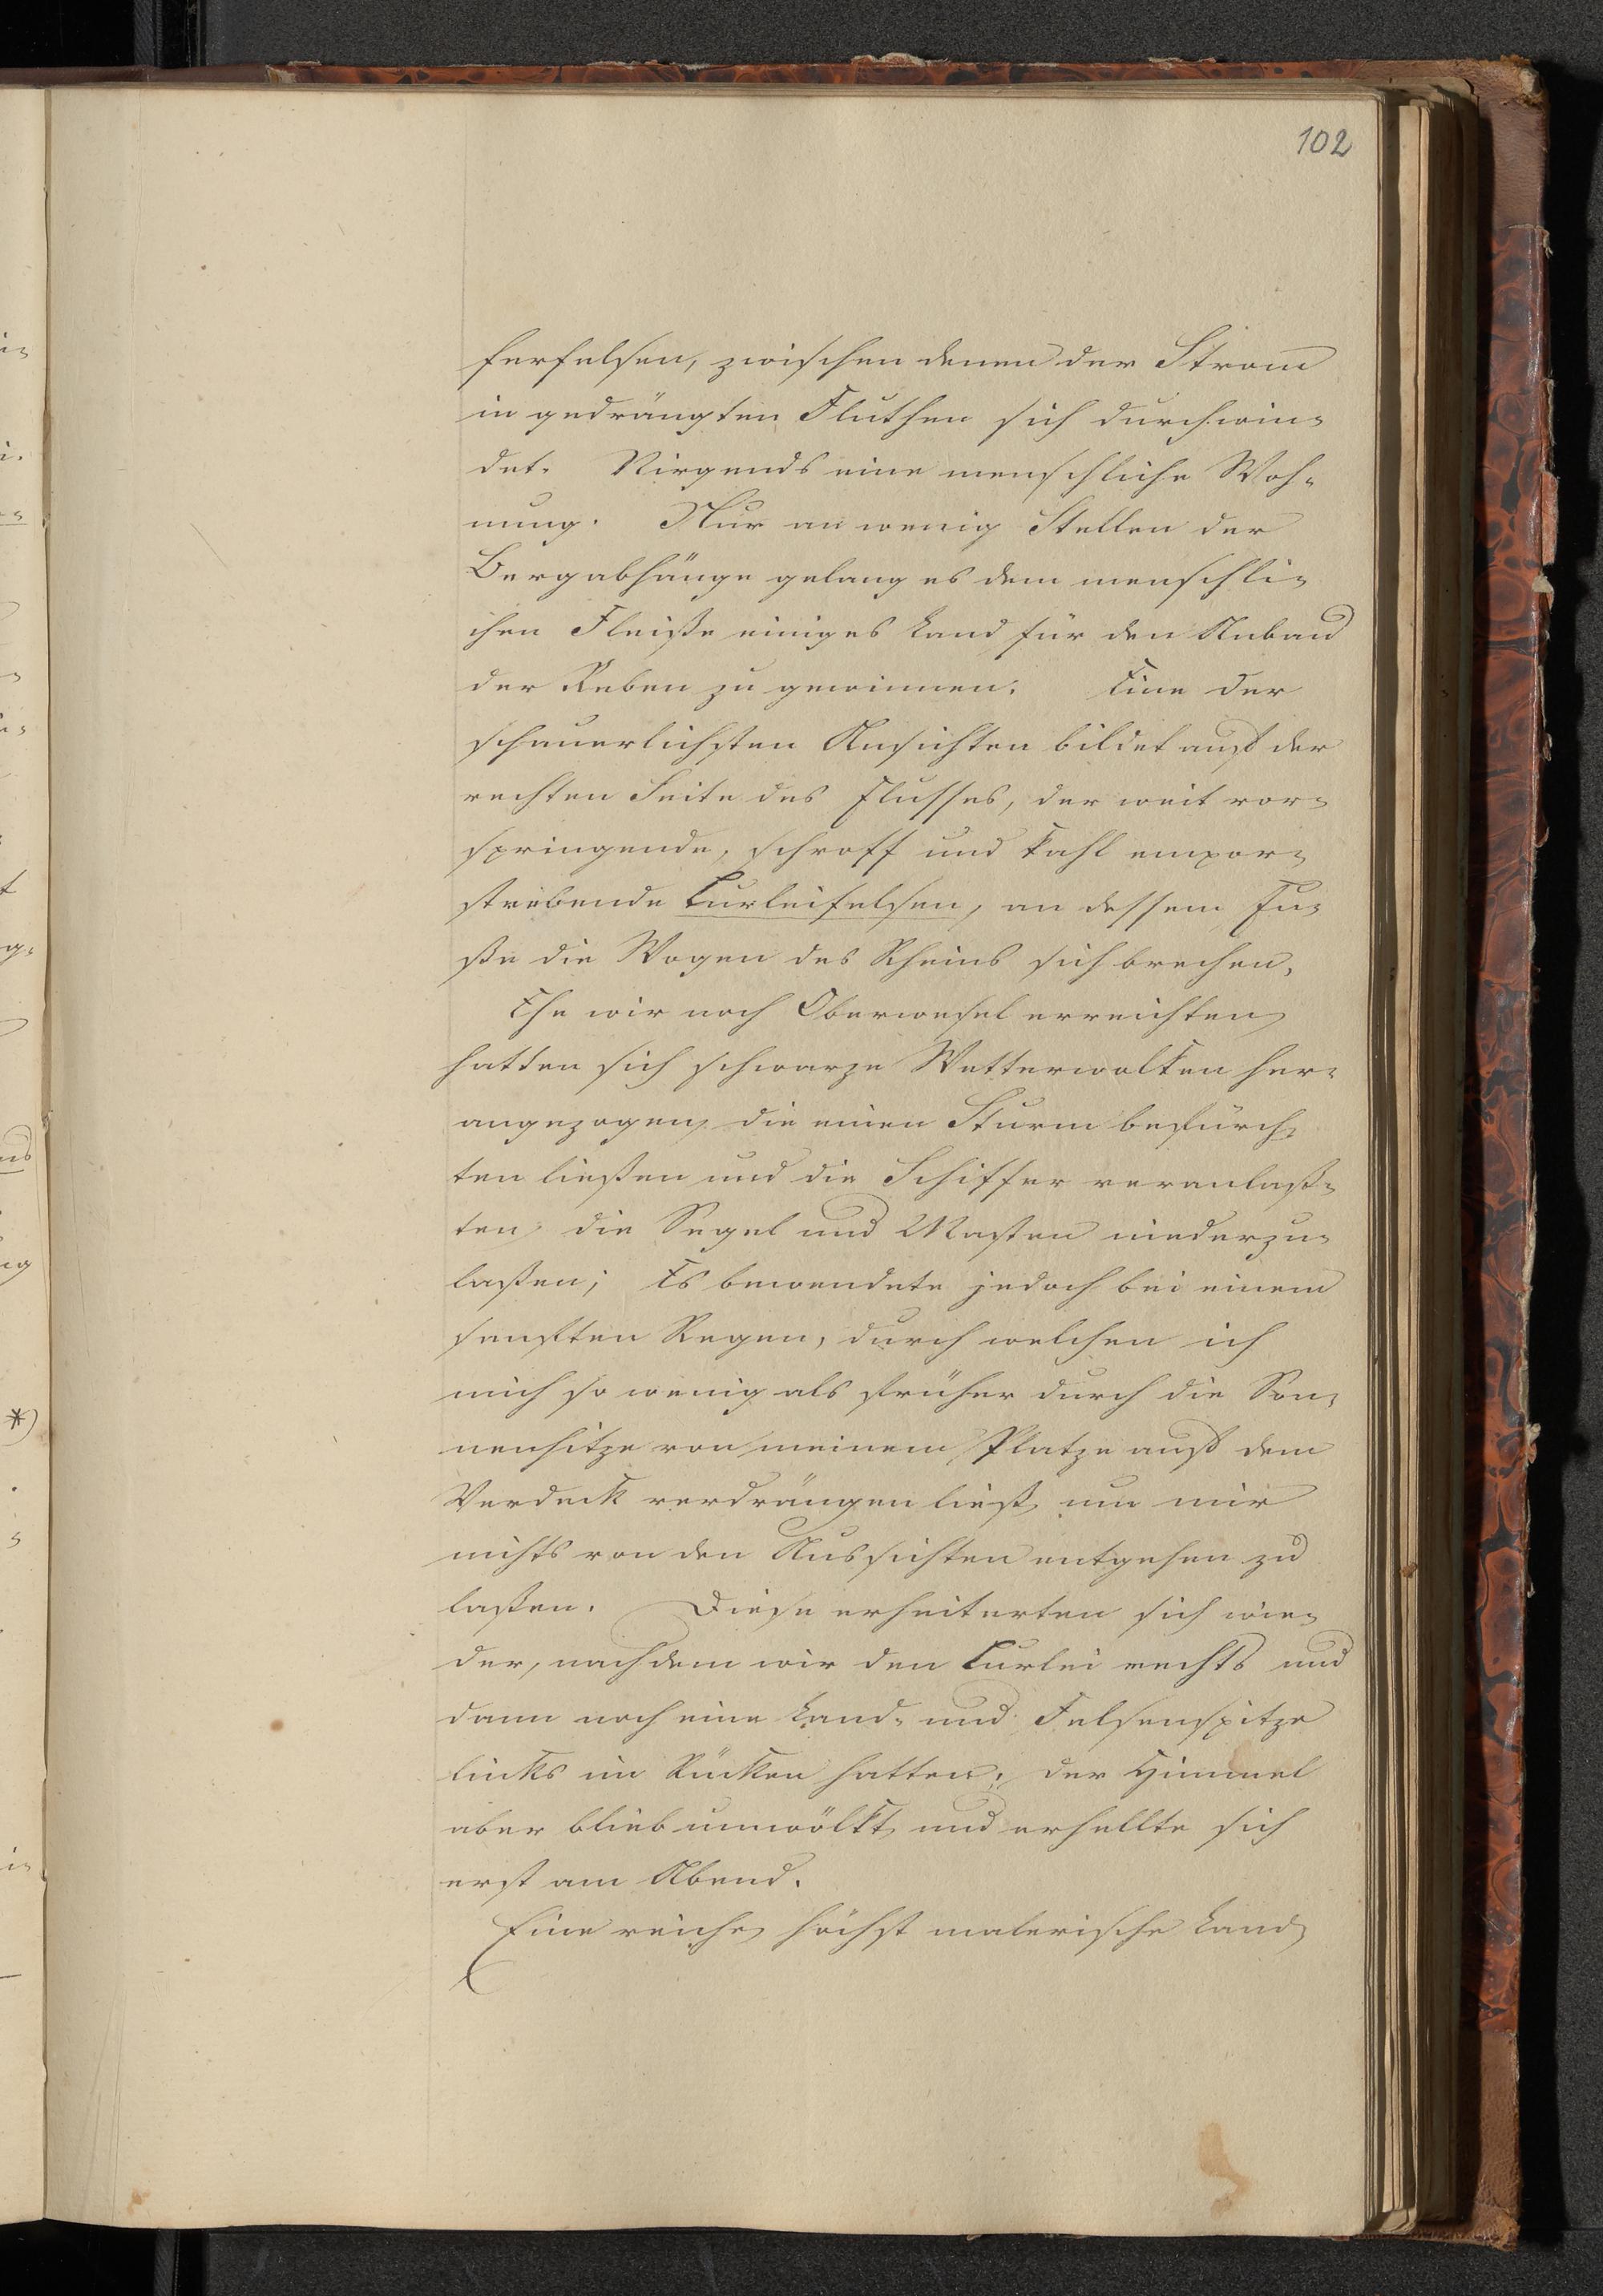 102
ferfelsen, zwischen denen der Strom
in gedrängten Fluthen sich durchwin-
det. Nirgends eine menschliche Woh-
nung. Nur an wenig Stellen der
Bergabhänge gelang es dem menschli-
chen Fleiße einiges Land für den Anbau
der Reben zu gewinnen. Eine der
schauerlichsten Ansichten bildet auf der
rechten Seite des Flusses, der weit vor-
springende, schroff und kahl empor-
strebende Lurleifelsen, an dessem Fu-
ße die Wogen des Rheins sich brechen.
Ehe wir noch Oberwesel erreichten
hatten sich schwarze Wetterwolken her-
angezogen, die einen Sturm befürch-
ten ließen und die Schiffer veranlaß-
ten, die Segel und Masten niederzu-
laßen; Es bewendete jedoch bei einem
sanften Regen, durch welchen ich
mich so wenig als früher durch die Son-
nenhitze von meinem Platze auf dem
Verdeck verdrängen ließ, um mir
nichts von den Aussichten entgehen zu
laßen. Diese erheiterten sich wie-
der, nachdem wir den Lurlei rechts und
dann noch eine Land- und Felsenspitze
links im Rücken hatten; der Himmel
aber blieb umwölkt und erhellte sich
erst am Abend.
Eine reiche, höchst malerische Land-